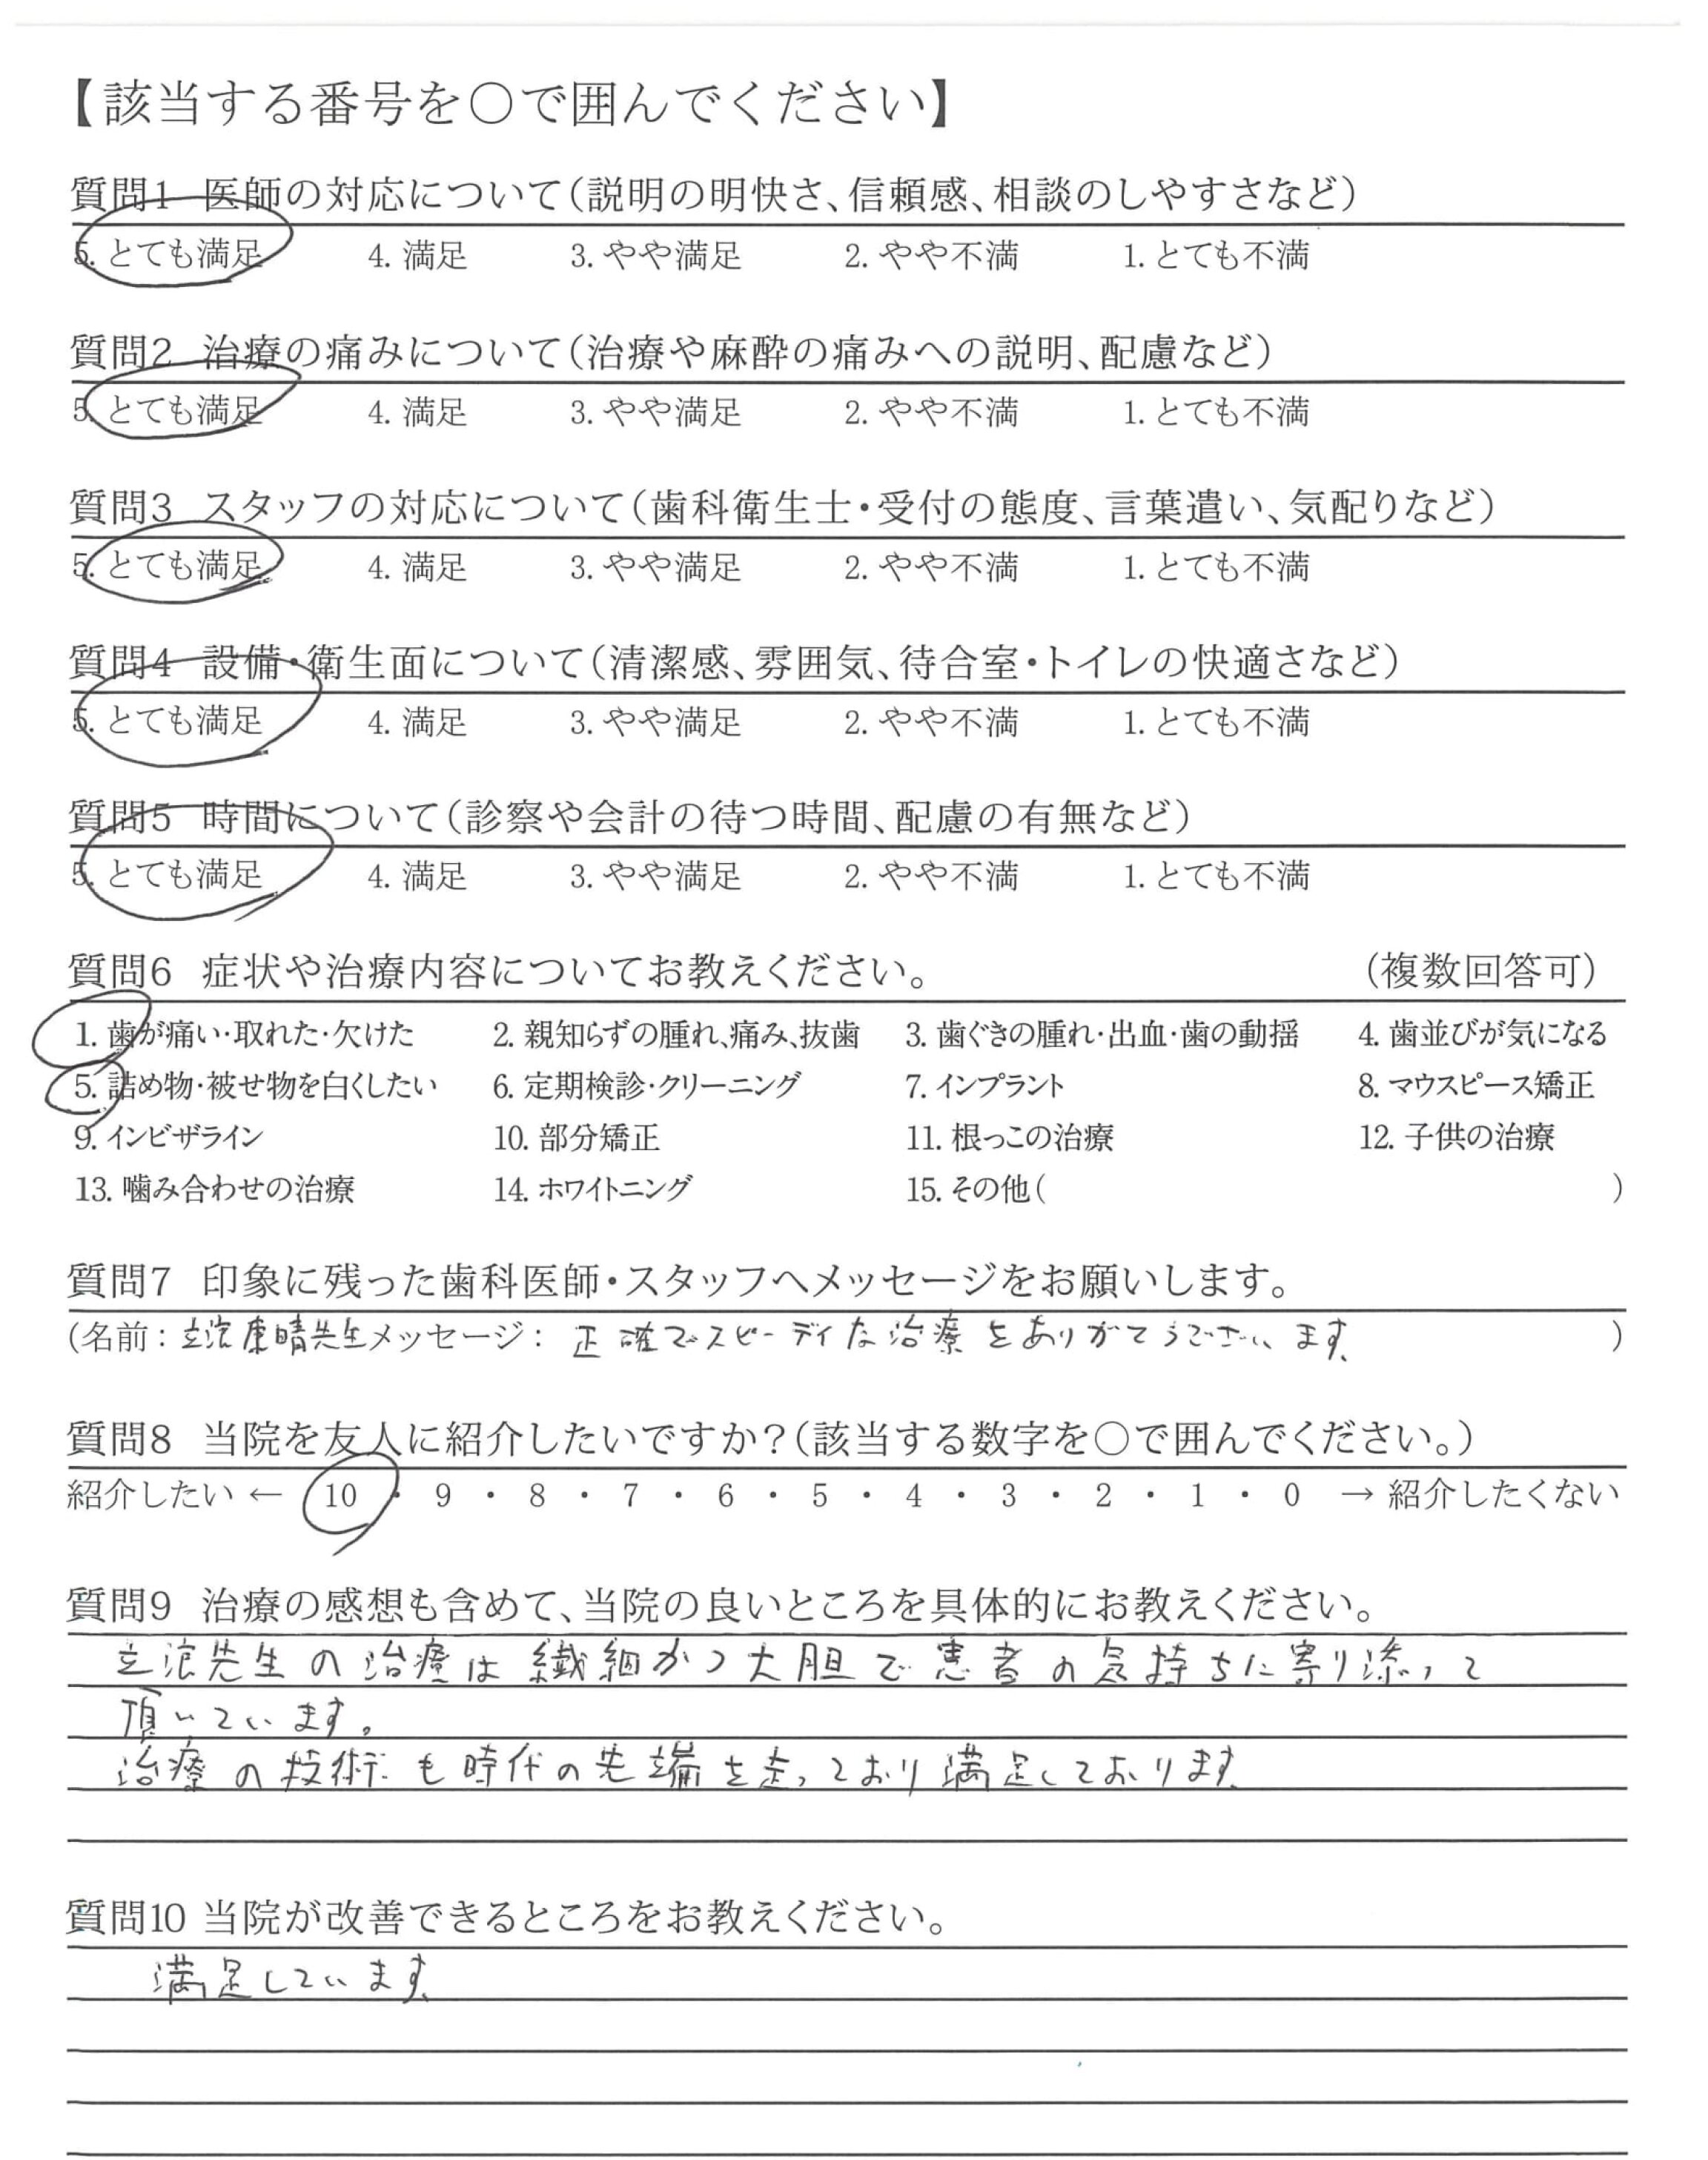 【該当する番号を〇で囲んでください】
質問1 医師の対応について（説明の明快さ、信頼感、相談のしやすさなど）
5. とても満足 4. 満足 3. やや満足 2. やや不満 1. とても不満
質問2 治療の痛みについて（治療や麻酔の痛みへの説明、配慮など）
5. とても満足 4. 満足 3. やや満足 2. やや不満 1. とても不満
質問3 スタッフの対応について（歯科衛生士・受付の態度、言葉遣い、気配りなど）
5. とても満足 4. 満足 3. やや満足 2. やや不満 1. とても不満
質問4 設備・衛生面について（清潔感、雰囲気、待合室・トイレの快適さなど）
5. とても満足 4. 満足 3. やや満足 2. やや不満 1. とても不満
質問5 時間について（診察や会計の待つ時間、配慮の有無など）
5. とても満足 4. 満足 3. やや満足 2. やや不満 1. とても不満
質問6 症状や治療内容についてお教えください。 （複数回答可）
1. 歯が痛い・取れた・欠けた 2. 親知らずの腫れ、痛み、抜歯 3. 歯ぐきの腫れ・出血・歯の動揺 4. 歯並びが気になる
5. 詰め物・被せ物を白くしたい 6. 定期検診・クリーニング 7. インプラント 8. マウスピース矯正
9. インビザライン 10. 部分矯正 11. 根っこの治療 12. 子供の治療
13. 噛み合わせの治療 14. ホワイトニング 15. その他（ ）
質問7 印象に残った歯科医師・スタッフへメッセージをお願いします。
（名前：立浪康晴先生メッセージ： 正確でスピーディな治療をありがとうございます。 ）
質問8 当院を友人に紹介したいですか？（該当する数字を〇で囲んでください。）
紹介したい ← 10 ・ 9 ・ 8 ・ 7 ・ 6 ・ 5 ・ 4 ・ 3 ・ 2 ・ 1 ・ 0 → 紹介したくない
質問9 治療の感想も含めて、当院の良いところを具体的にお教えください。
立浪先生の治療は繊細かつ大胆で患者の気持ちに寄り添って
頂いています。
治療の技術も時代の先端を走っており満足しております。
質問10 当院が改善できるところをお教えください。
満足しています。